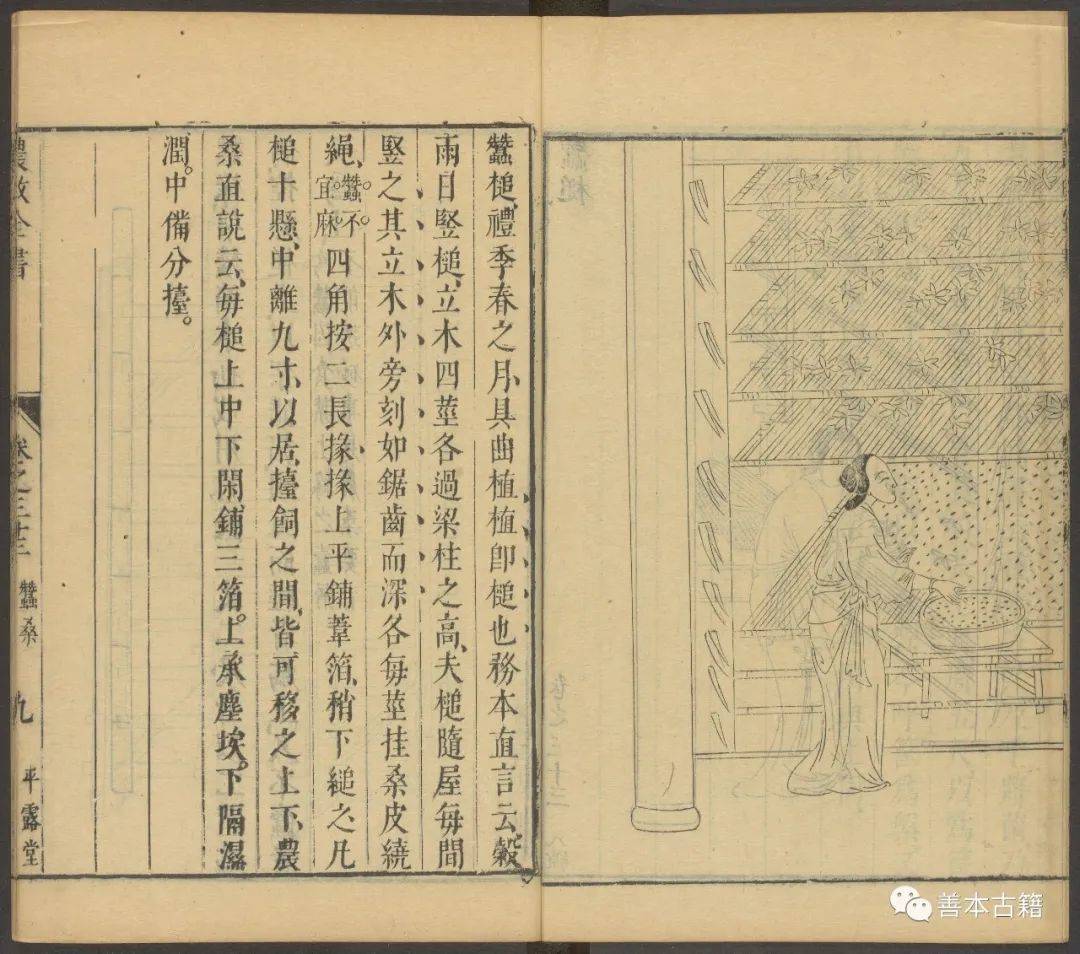 蠶槌禮季春之月具曲植植卽槌也務本直言云穀
雨日竪槌立木四莖各過梁柱之高夫槌隨屋每間
竪之其立木外旁刻如鋸齒而深各每莖挂桑皮繞
繩蠶不宜麻四角按二長椽椽上平鋪葦箔稍下縋之凡
槌十懸中離九寸以居擡飼之間皆可移之上下農
桑直說云每槌上中下閑鋪三箔上承塵埃下隔濕
潤中備分擡
農政全書
卷之三十三
蠶桑
九
平露堂
善本古籍